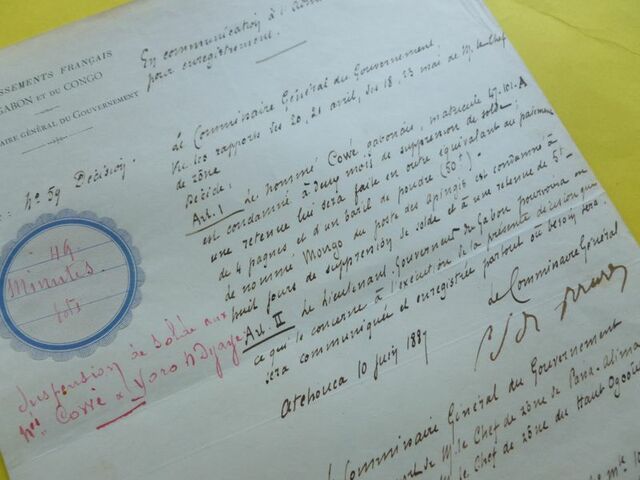 En communication à l'
pour enregistrement.
SSEMENTS FRANÇAIS
GABON ET DU CONGO
AIRE GÉNÉRAL DU GOUVERNEMENT
nº 59 Décision.
Le Commissaire Général du Gouvernement
Vu les rapports des 20, 21 avril, des 18, 23 mai de M. le Chef
de zône
Décide:
Art. I Le nommé Cowè gabonais, matricule 101. A
est condamné à deux mois de suppression de solde;
une retenue lui sera faite en outre équivalant au paiement
de 4 pagnes et d'un baril de poudre (50f).
Le nommé Mongo du poste des Apingis est condamné à
huit jours de suppression de solde et à une retenue de 5f
Art. II Le Lieutenant-Gouverneur du Gabon pourvoira en
ce qui le concerne à l'exécution de la présente décision qui
sera communiquée et enregistrée partout où besoin sera
Le Commissaire Général
10 juin 1887
49
Minutes
fols
Suspension de solde aux
nés Cowè &
Le Commissaire Général du Gouvernement
de M. le Chef de zône de Pana-Alima
le Chef de zône du Haut Ogooué